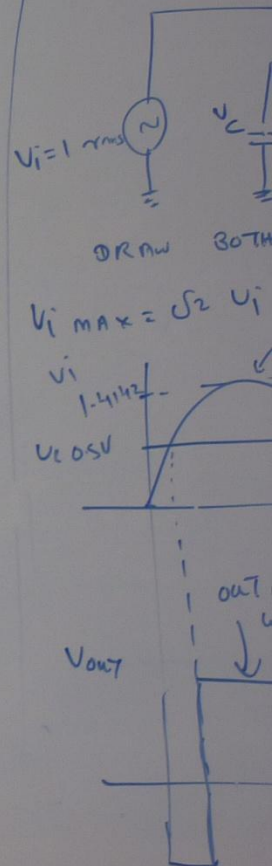 Vi=1 rms
Vc
DRAW BOTH
Vi MAX = √2 Vi
Vi
1.4142
Vc 0.5V
OUT
VOUT